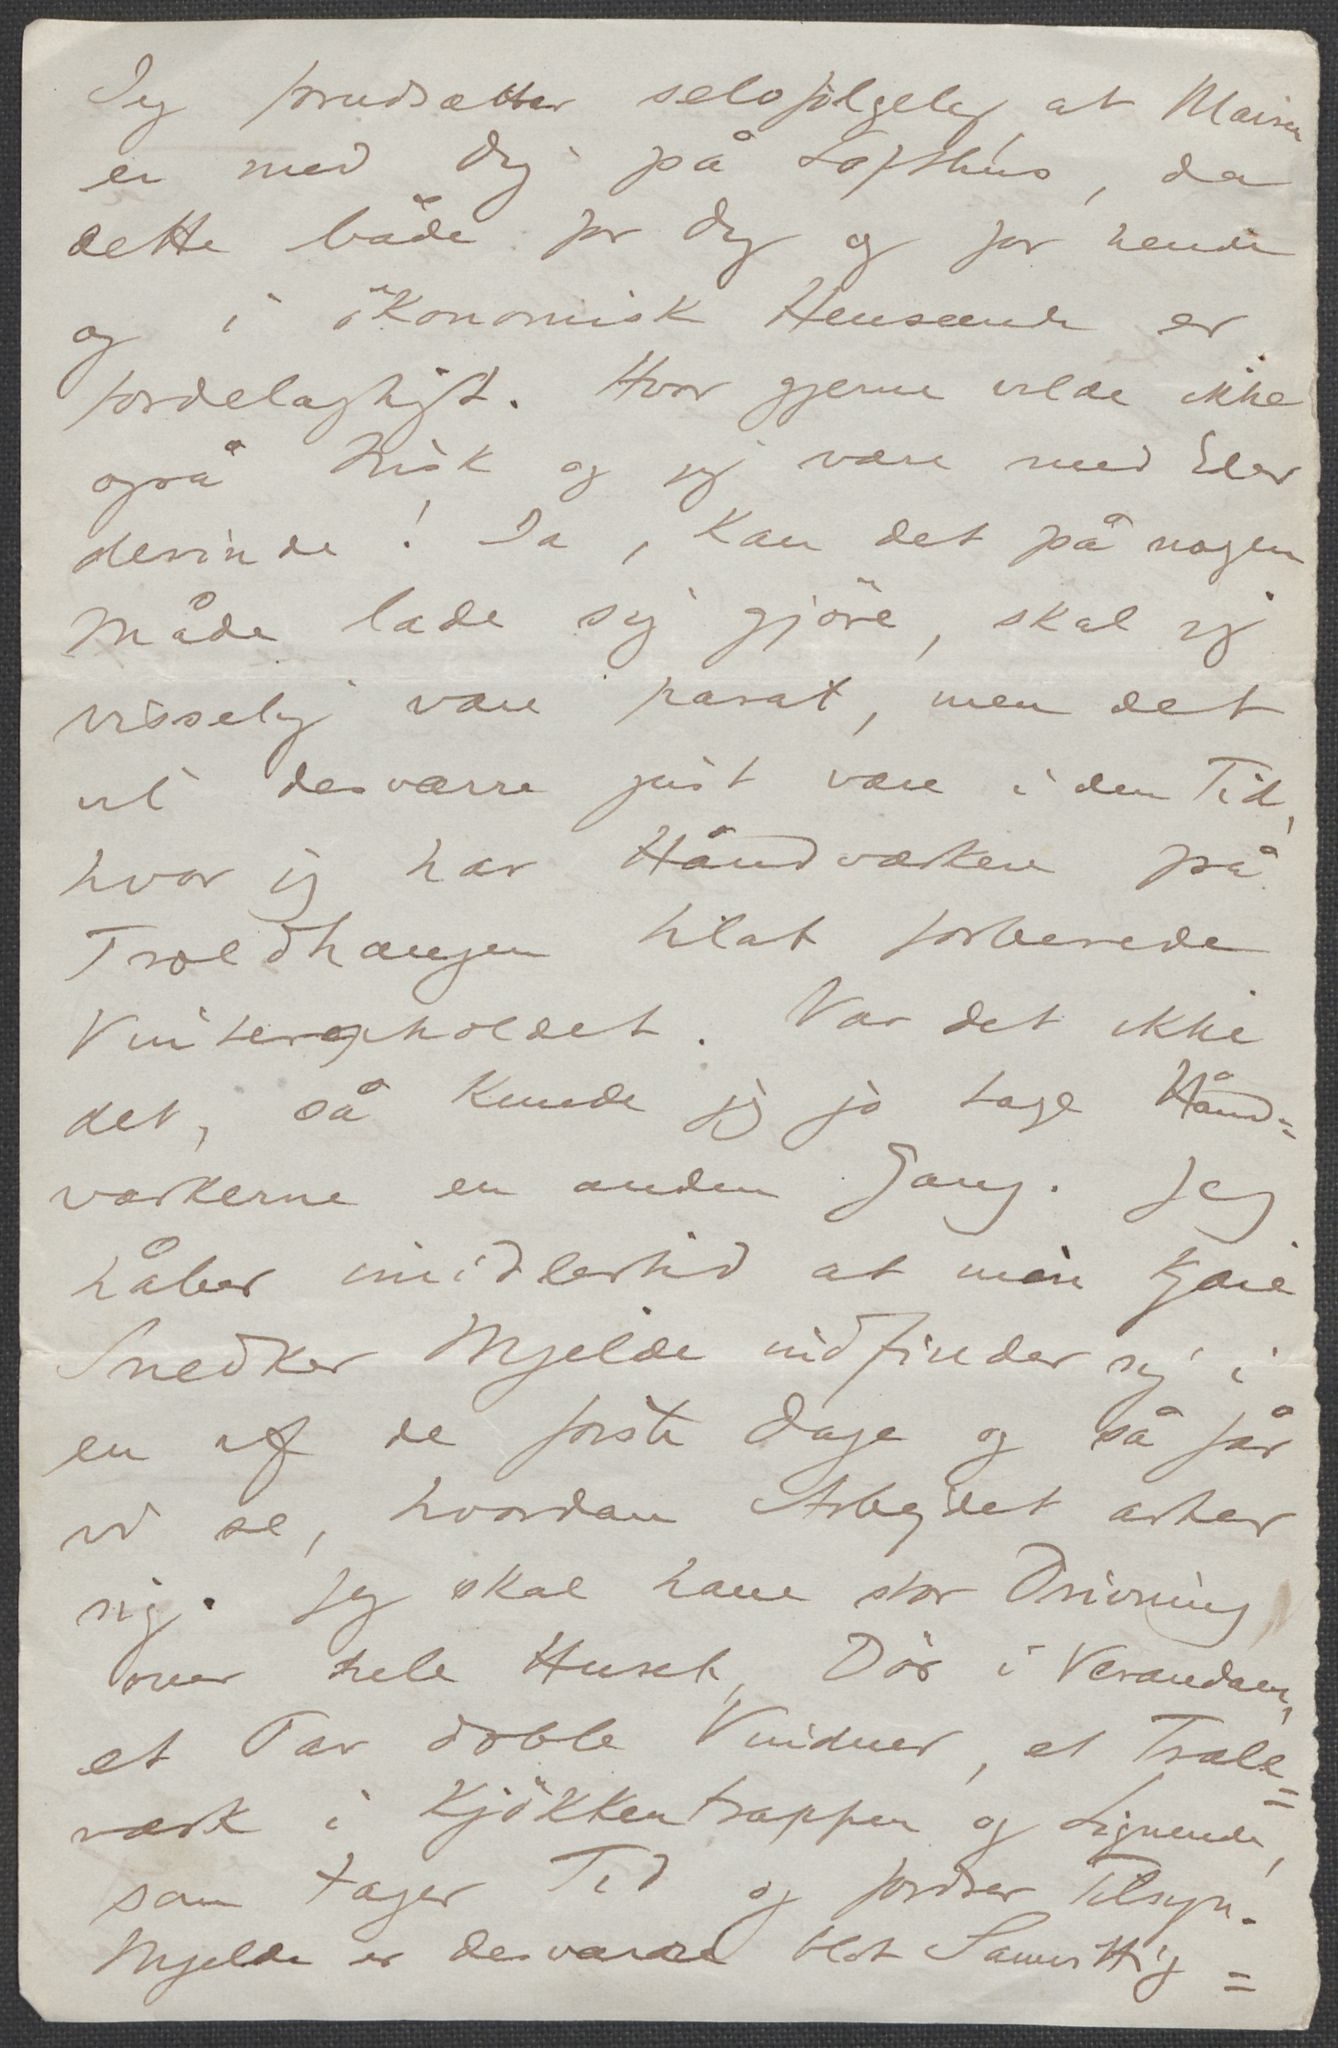 Jeg forudsætter selvfølgelig at Maisen
er med Dig på Lofthus, da
dette både for Dig og for hende
og i økonomisk Henseende er
fordelagtigst. Hvor gjerne vilde ikke
også Frisk og jeg være med Eder
derinde! Ja, kan det på nogen
Måde lade sig gjöre, skal jeg
visselig være parat, men det
vil desværre just være i den Tid,
hvor jeg har Håndværkere på
Troldhaugen til at forberede
Vinteropholdet. Var det ikke
det, så kunde jeg jo tage Hånd=
værkerne en anden Gang. Jeg
håber imidlertid at min kjære
Snedker Mjelde indfinder sig i
en af de første Dage og så får
vi se, hvordan Arbejdet arter
sig. Jeg skal have stor Drivning
over hele Huset, Dör i Verandaen,
et Par doble Vinduer, et Træle=
værk i Kjökkentrappen og Lignende,
som tager Tid og fordrer Tilsyn.
Mjelde er desværre blot Samvittig=